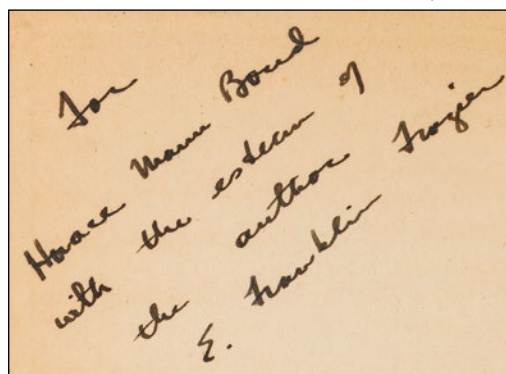 For
Horace Mann Bond
with the esteem of
the author
E. Franklin Frazier